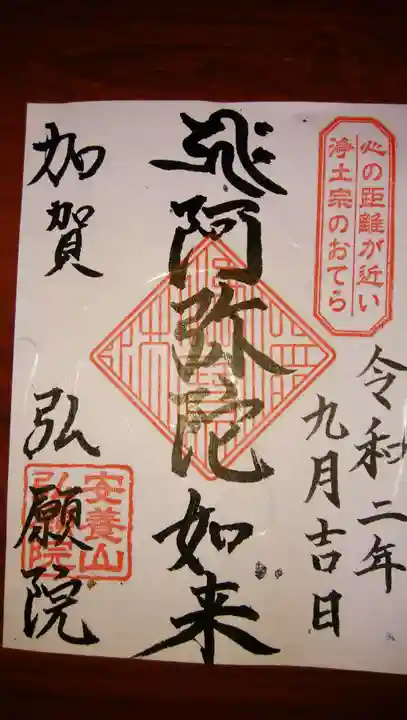 心の距離が近い
浄土宗のおてら
令和二年
九月吉日
飛阿弥陀如来
加賀 弘願院
安養山
弘願院